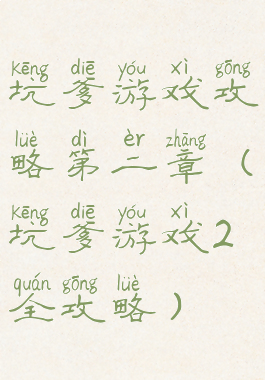 kēng diē yóu xì gōng
坑爹游戏攻
lüè dì èr zhāng
略第二章（
kēng diē yóu xì
坑爹游戏2
quán gōng lüè
全攻略）